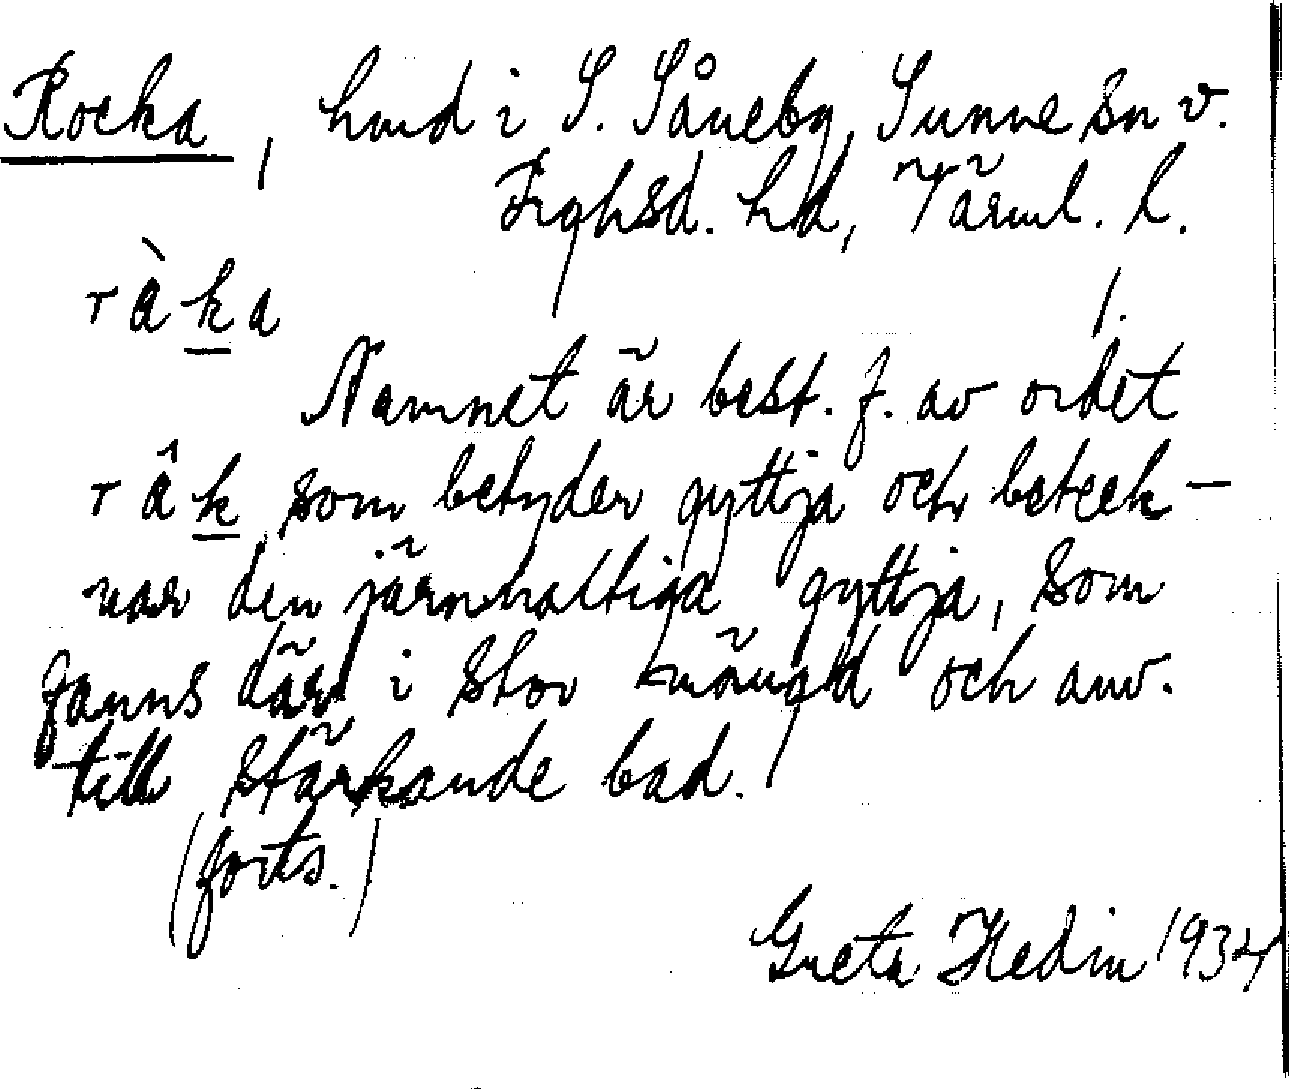 Rocka, hmd i S. Såneby, Sunne sn v.
Fryksd. hd, Värml. l.
1.
ràka
Namnet är best. f. av ordet
râk som betyder gyttja och beteck-
nar den järnhaltiga gyttja, som
fanns där i stor mängd och anv.
till stärkande bad.
(forts.)
Greta Hedin 1934